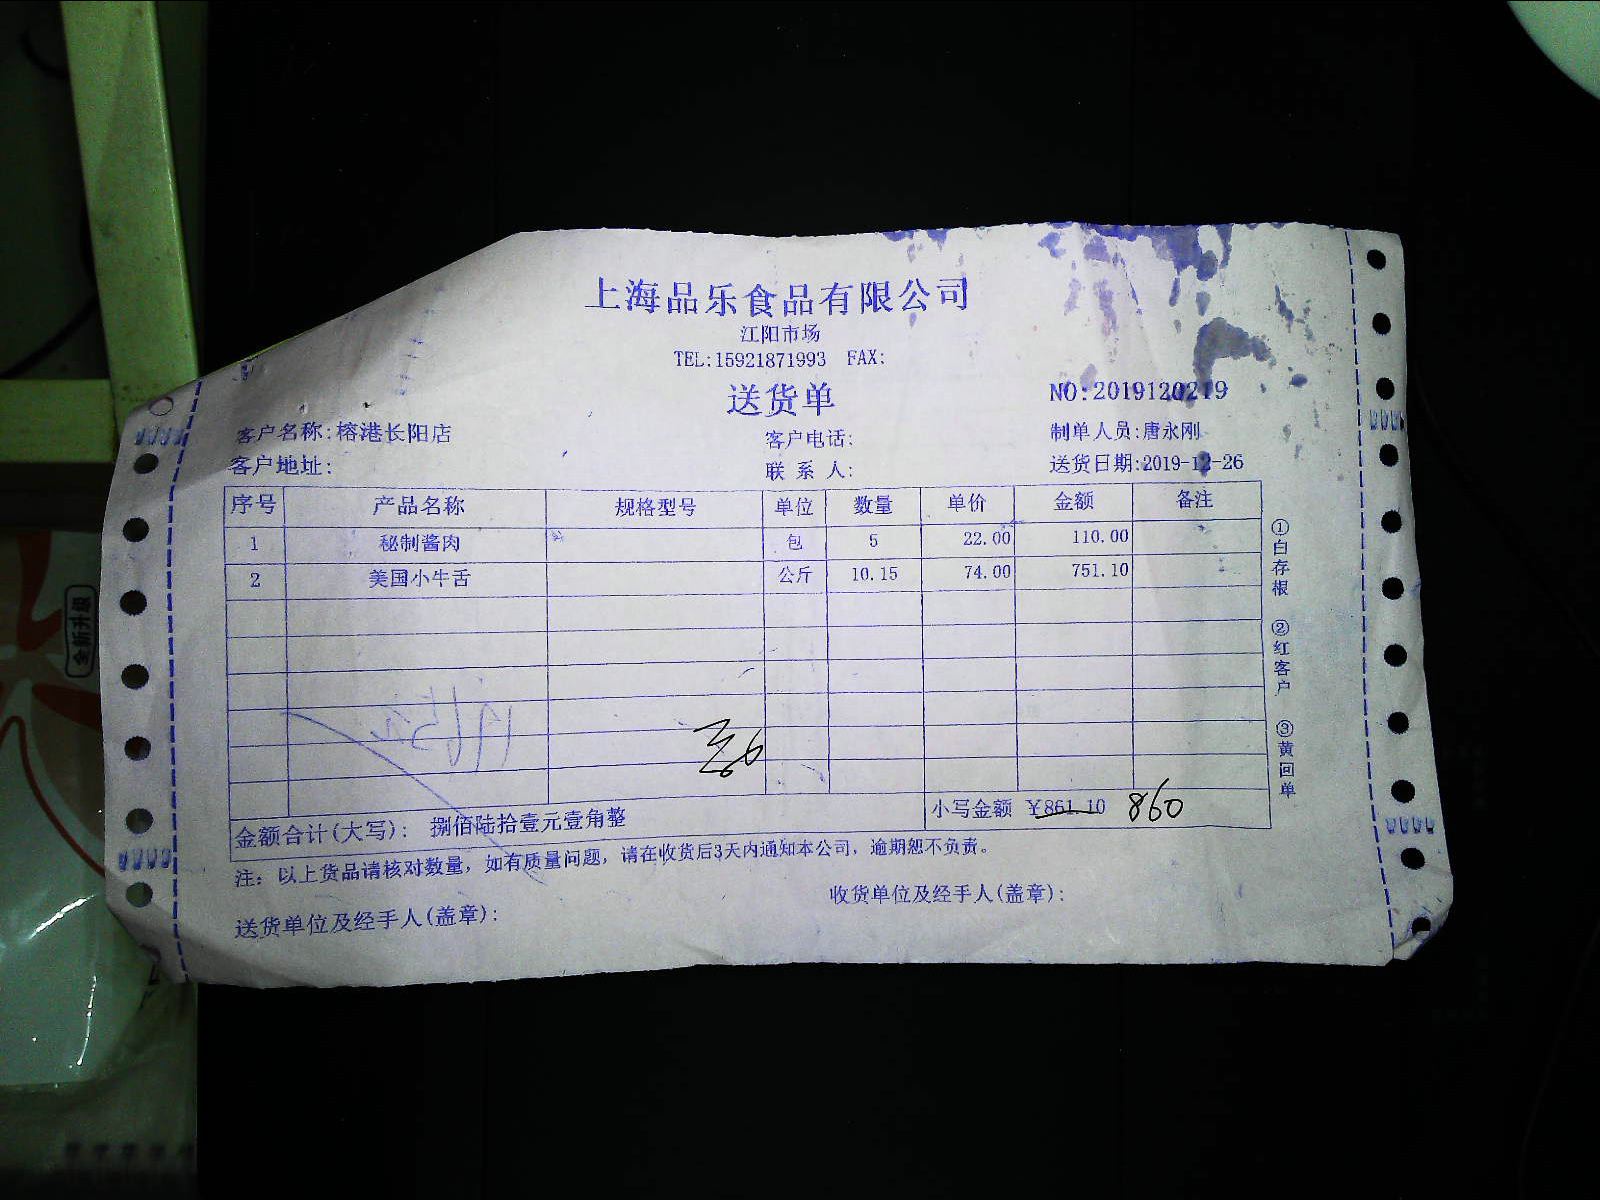 上海品乐食品有限公司
江阳市场
TEL:15921871993 FAX:
送货单
NO:2019120219
客户名称:榕港长阳店 客户电话: 制单人员:唐永刚
客户地址: 联系人: 送货日期:2019-12-26
序号 产品名称 规格型号 单位 数量 单价 金额 备注
1 秘制酱肉 包 5 22.00 110.00
2 美国小牛舌 公斤 10.15 74.00 751.10
金额合计(大写): 捌佰陆拾壹元壹角整 小写金额 ¥861.10 860
注: 以上货品请核对数量, 如有质量问题, 请在收货后3天内通知本公司, 逾期恕不负责。
送货单位及经手人(盖章): 收货单位及经手人(盖章):
①白存根 ②红客户 ③黄回单
全新升级